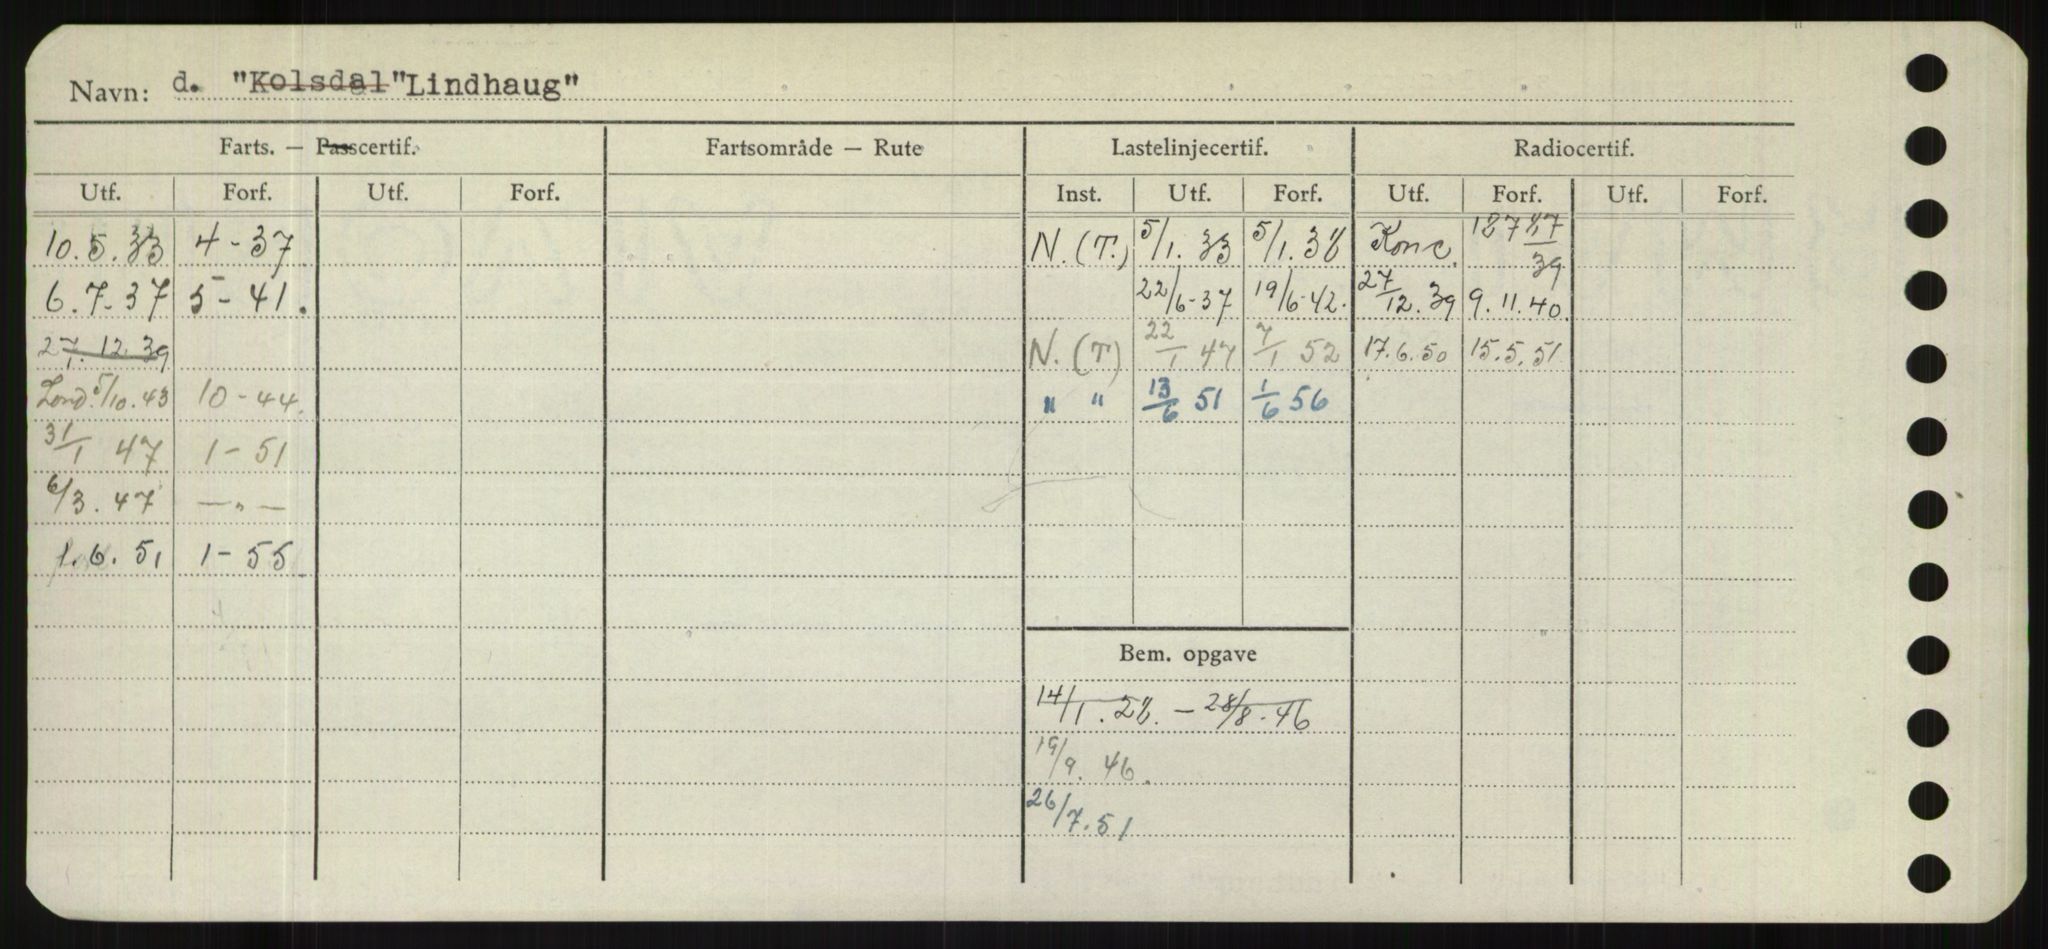 Navn: d. "Kolsdal" "Lindhaug"
Farts. — Passcertif. Fartsområde — Rute Lastelinjecertif. Radiocertif.
Utf. Forf. Utf. Forf. Inst. Utf. Forf. Utf. Forf. Utf. Forf.
10.5.33 4-37 N.(T.) 5/1.33 5/1.38 Konc.
6.7.37 5-41. 22/6-37 19/6-42. 27/12.39 9.11.40
27/1.12.39 N.(T) 22/1 47 7/1 52 17.6.50 15.5.51
Lond. 5/10.43 10-44. " " 13/6 51 1/6 56
31/1 47 1-51
6/3.47 —"—
1.6.51 1-55
Bem. opgave
14/1.28. — 28/8.46
19/9.46.
26/7.51